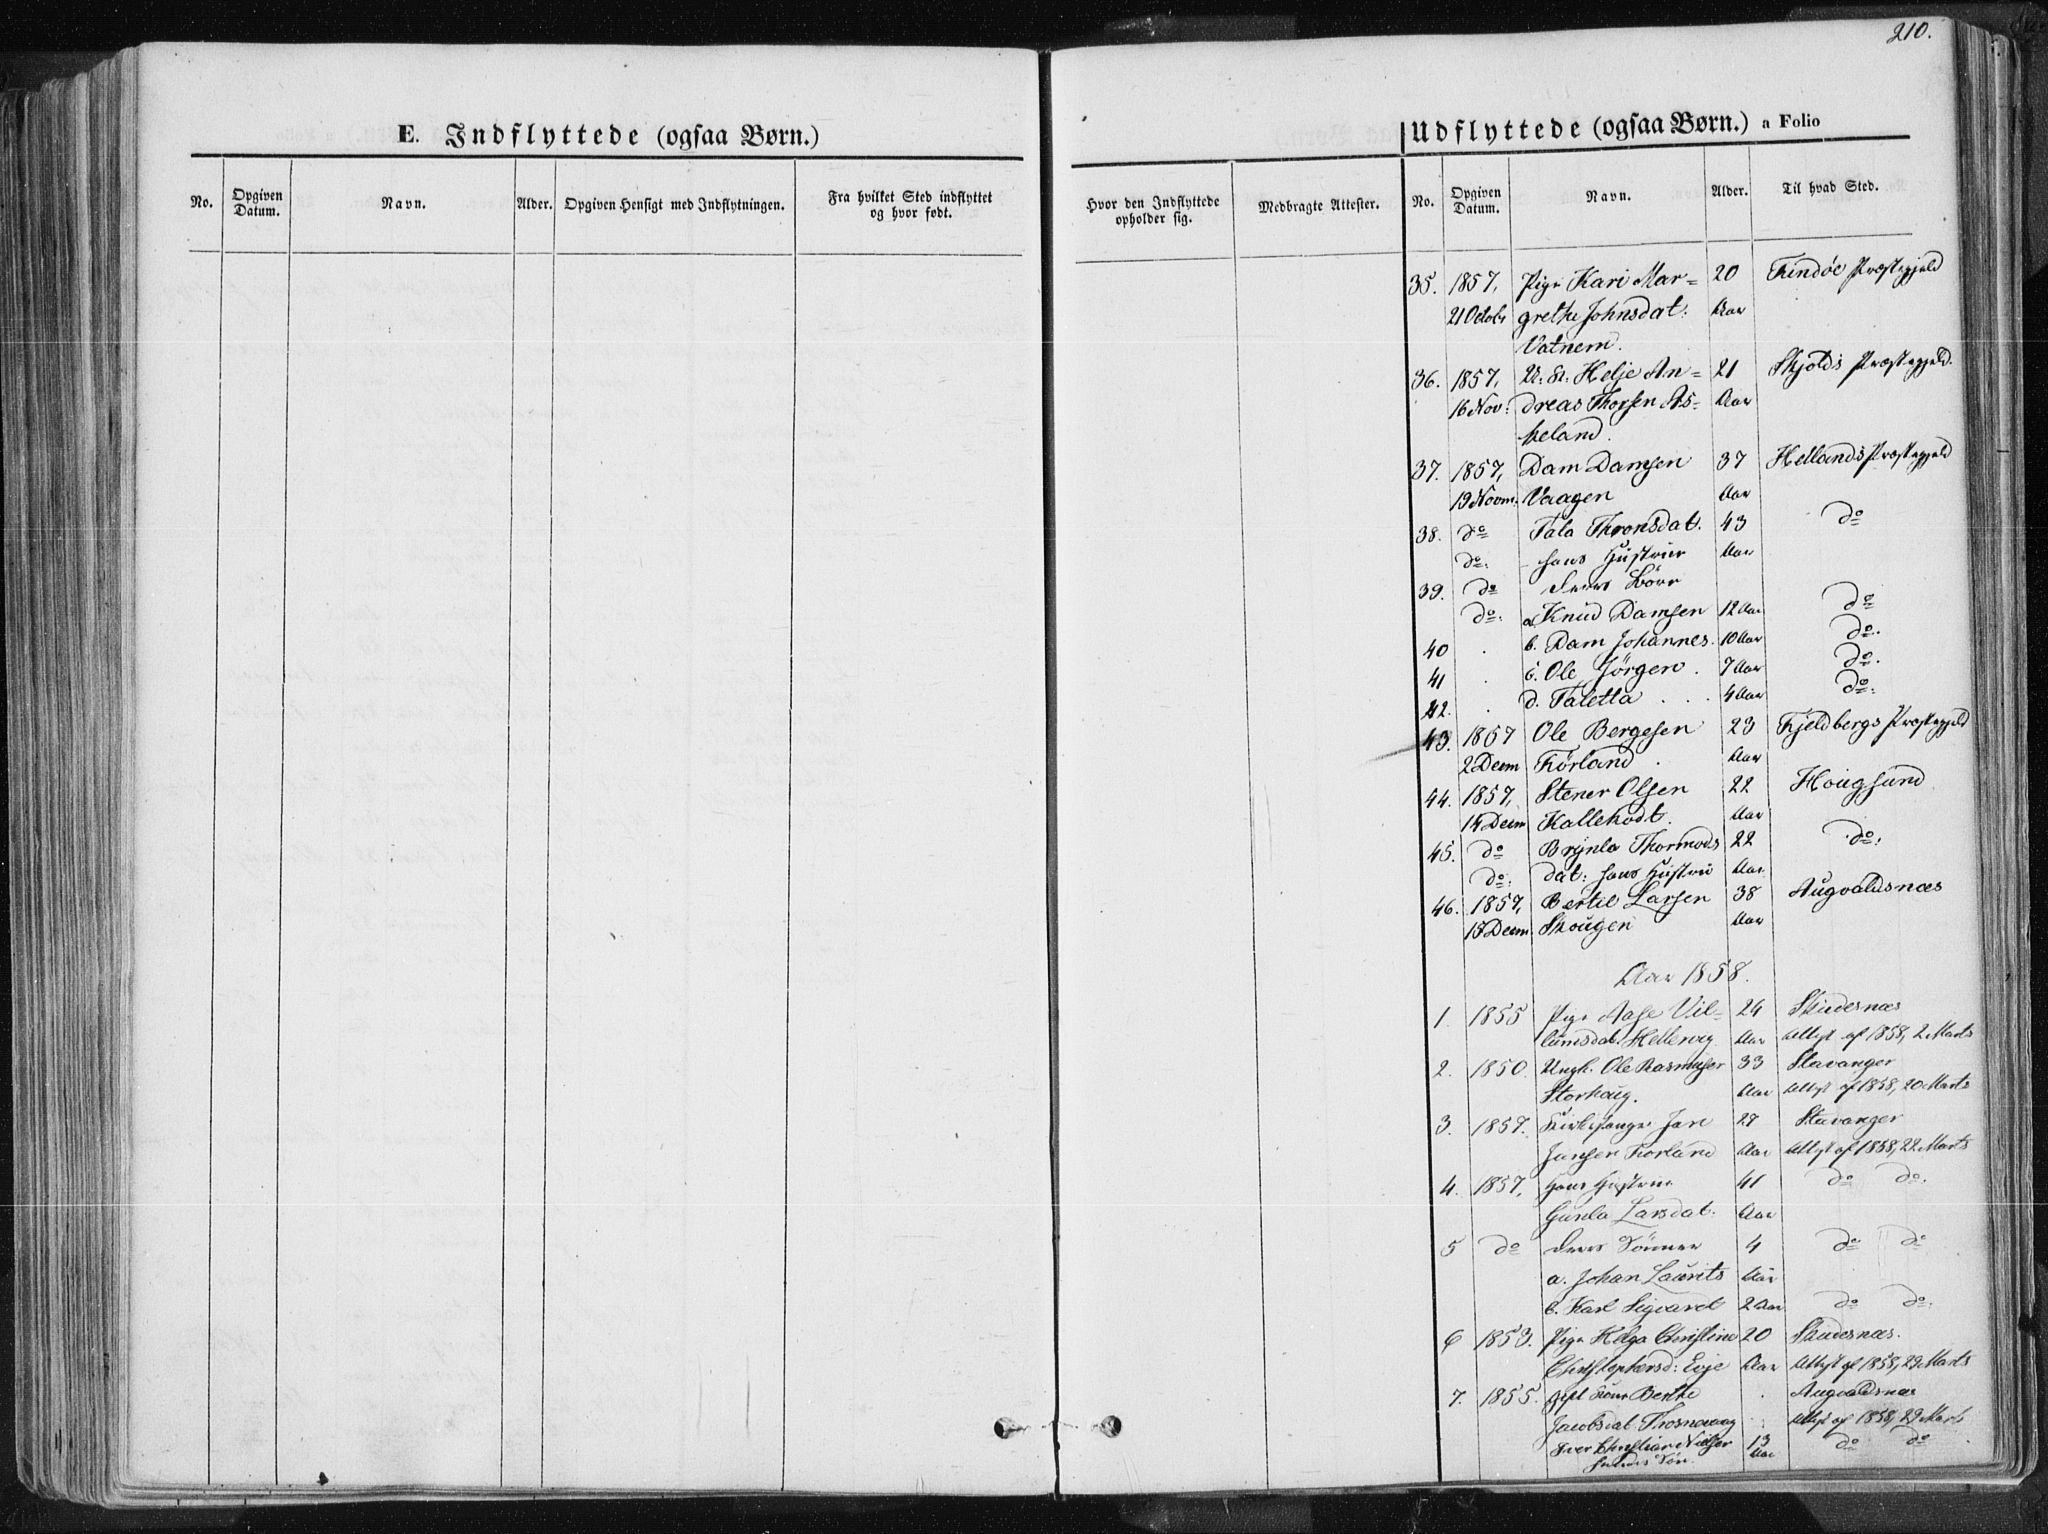 210.
E. Indflyttede (ogsaa Børn.)
Udflyttede (ogsaa Børn.) a Folio
No. Opgiven Datum. Navn. Alder. Opgiven Hensigt med Indflytningen. Fra hvilket Sted indflyttet og hvor født.
Hvor den Indflyttede opholder sig. Medbragte Attester. No. Opgiven Datum. Navn. Alder. Til hvad Sted.
35. 1857, Pige Kari Mar= 20 Findöe Præstegjeld
21 Octobr grethe Johnsdat: Aar
Vatnem.
36. 1857, U. K. Helje An= 21 Skjolds Præstegjeld.
16 Nov: dreas Thorsen As= Aar
keland.
37. 1857, Dam Damsen 37 Hellands Præstegjeld
19 Novm: Vaagen Aar
38. do Tala Thronsdat. 43 do
do: hans Hustrue Aar
39. do deres Börn
do: a. Knud Damsen 12 Aar do
40 . b. Dam Johannes. 10 Aar do.
41 . c. Ole Jörgen . 7 Aar do.
42. . d. Taletta . . . 4 Aar do:
43. 1857 Ole Bergesen 23 Fjeldbergs Præstegjeld
2 Decm Förland . Aar
44. 1857, Stener Olsen 22 Hougsund
14 Decm Kallehodt. Aar
45. do Brynla Thormods 22 do:
do: dat: hans Hustru Aar
46. 1857, Bertil Larsen 38 Augvaldsnæs
15 Decm. Skougen Aar
Aar 1858.
1. 1855 Pige Aase Vil= 24 Skudesnæs
lumsdat. Hellevig Aar Attest af 1858, 2 Marts
2. 1850. Ungk. Ole Rasmusen 33 Stavanger
Storhaug. Aar Attest af 1858, 20 Marts
3. 1857. Kirkesanger Jan 27 Stavanger
Jansen Förland Aar Attest af 1858, 22 Marts
4. 1857, Hans Hustrue 41 do do.
Gunla Larsdat. Aar
5 do deres Sönner 4 do do
a. Johan Laurits Aar
b. Karl Sigvard 2 Aar do do.
6 1853. Pige Helga Christine 20 Skudesnæs.
Christophersd: Evje Aar Attest af 1858, 29 Marts
7. 1855. Gift Kone Berthe . Augvaldsnæs
Jacobsdat. . Attest af 1858, 29 Marts
Iver Christian Nielsen 13 do do
hendes Sön. Aar